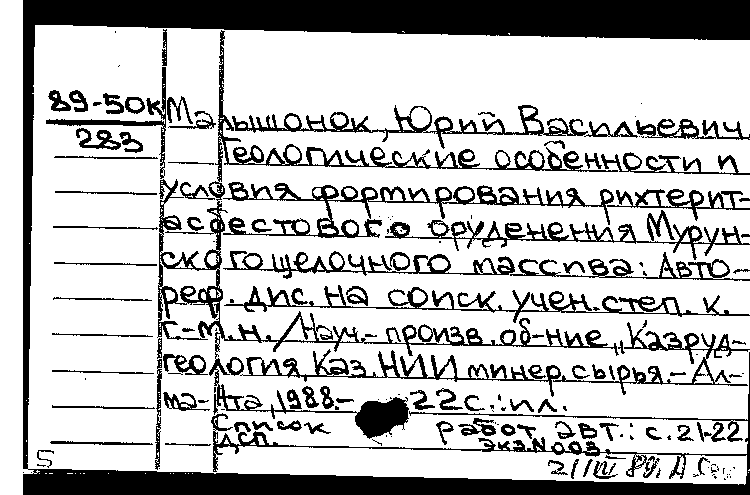 89-50к
283
Малышонок, Юрий Васильевич.
Геологические особенности и
условия формирования рихтерит-
асбестового оруденения Мурун-
ского щелочного массива: Авто-
реф. дис. на соиск. учен. степ. к.
г.-м.н. / Науч.-произв. об-ние „Казруд-
геология, Каз. НИИ минер. сырья. - Ал-
ма-Ата, 1988. - 22 с.: ил.
Список работ авт.: с. 21-22.
ДСП. Экз. N 003.
5